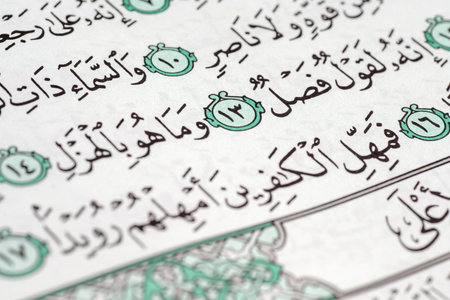 إِنَّهُۥ عَلَىٰ
مِن قُوَّةٍ وَلَا نَاصِرٍ ١٠ وَٱلسَّمَآءِ ذَاتِ
إِنَّهُۥ لَقَوْلٌ فَصْلٌ ١٣ وَمَا هُوَ بِٱلْهَزْلِ ١٤
١٦ فَمَهِّلِ ٱلْكَٰفِرِينَ أَمْهِلْهُمْ رُوَيْدًۢا ١٧